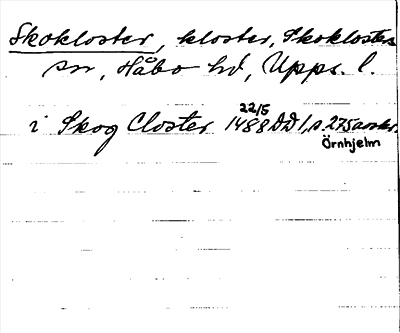 Skokloster, kloster, Skokloster
sn, Håbo hd, Upps. l.
22/5
i Skog Closter 1488 DD 1, s. 275 avskr.
Örnhjelm